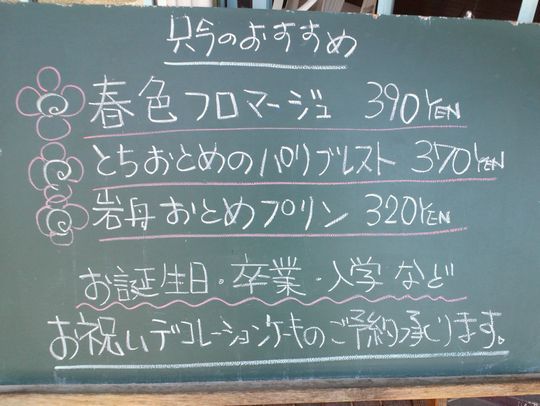 只今のおすすめ
春色フロマージュ 390YEN
とちおとめのパリブレスト 370YEN
岩舟おとめプリン 320YEN
お誕生日・卒業・入学など
お祝いデコレーションケーキのご予約承ります。